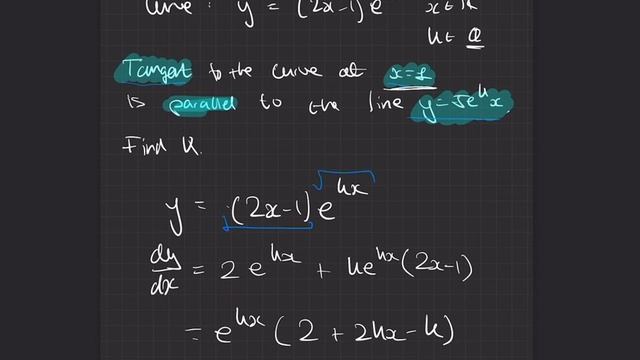 Curve: y = (2x-1)e x∈ℝ
k∈ ℚ
Tangent to the curve at x=1
is parallel to the line y=5eᵏx
Find k.
y = (2x-1)eᵏˣ
dy/dx = 2eᵏˣ + keᵏˣ(2x-1)
= eᵏˣ(2+2kx-k)